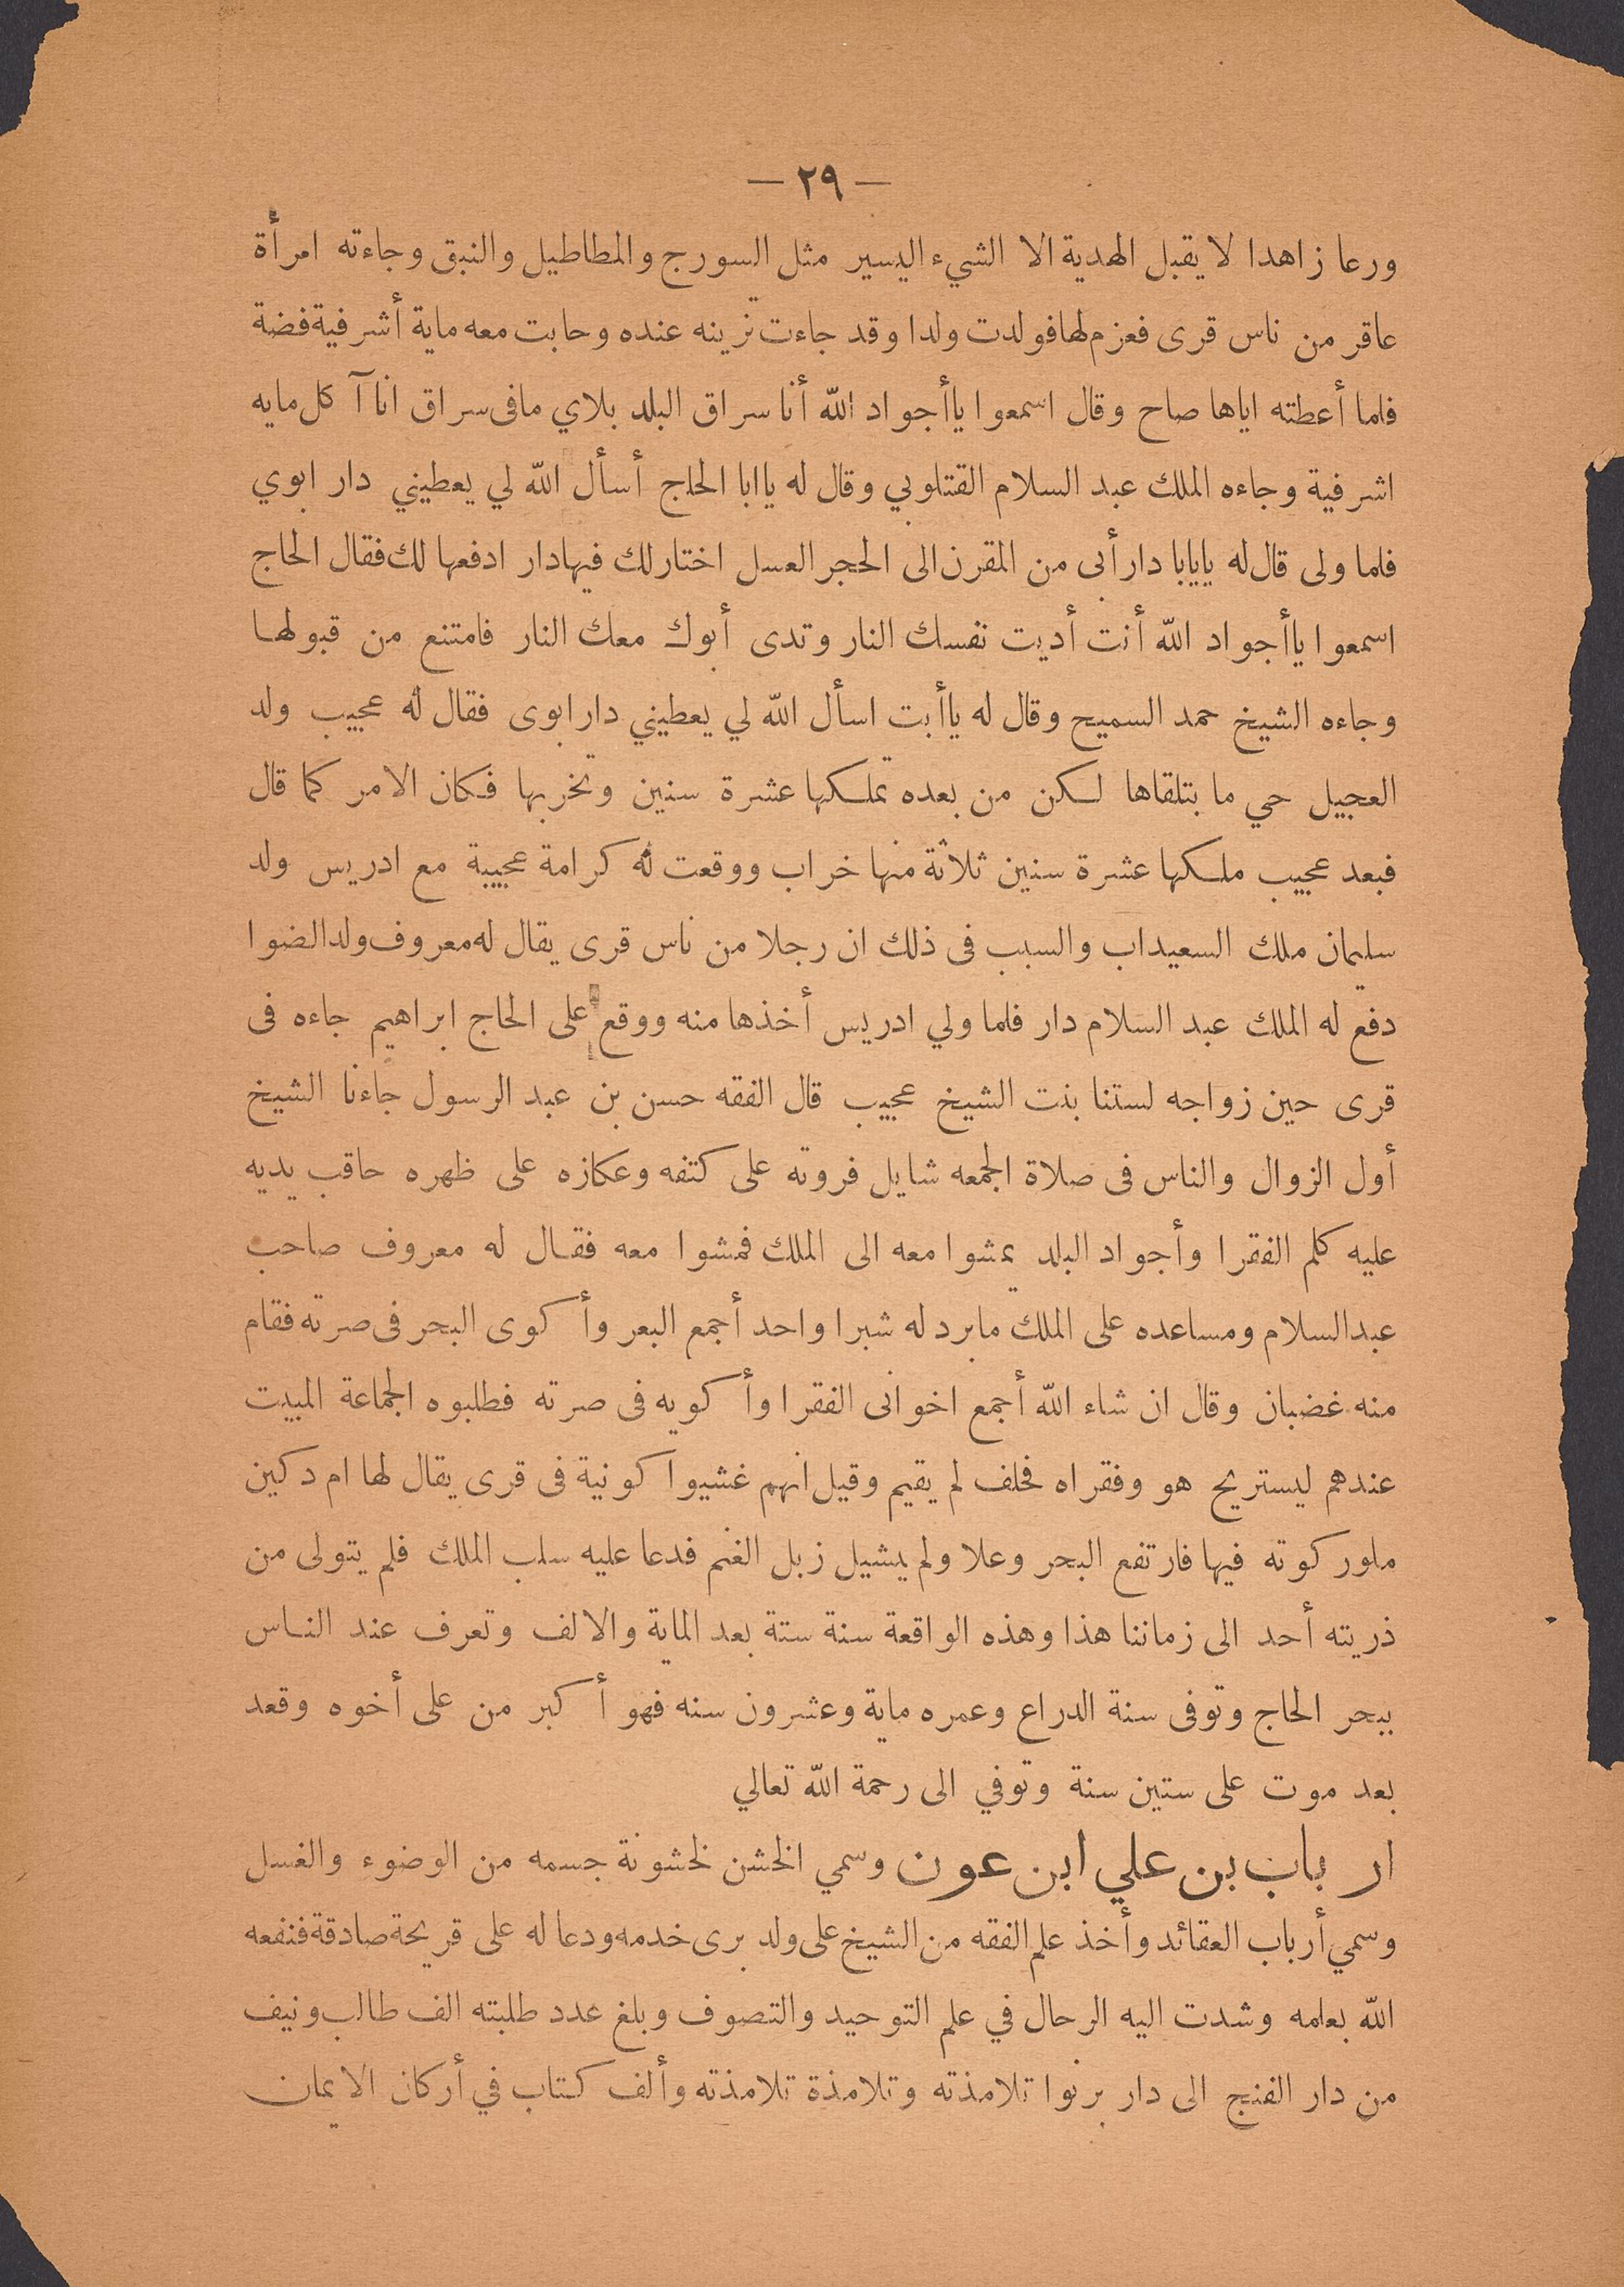 — ٢٩ —
ورعا زاهدا لا يقبل الهدية الا الشيء اليسير مثل السورج والمطاطيل والنبق وجاءته امرأة
عاقر من ناس قرى فعزم لها فولدت ولدا وقد جاءت تزينه عنده وحابت معه ماية أشرفية فضة
فلما أعطته اياها صاح وقال اسمعوا ياأجواد الله أنا سراق البلد بلاي مافى سراق انا آكل مايه
اشرفية وجاءه الملك عبد السلام القتلوبي وقال له ياابا الحاج أسأل الله لي يعطيني دار ابوي
فلما ولى قال له يايابا دار أبى من المقرن الى الحجر العسل اختار لك فيها دار ادفعها لك فقال الحاج
اسمعوا ياأجواد الله أنت أديت نفسك النار وتدى أبوك معك النار فامتنع من قبولها
وجاءه الشيخ حمد السميح وقال له ياأبت اسأل الله لي يعطيني دار ابوى فقال له عجيب ولد
العجيل حي ما بتلقاها لكن من بعده تملكها عشرة سنين وتخربها فكان الامر كما قال
فبعد عجيب ملكها عشرة سنين ثلاثة منها خراب ووقعت له كرامة عجيبة مع ادريس ولد
سليمان ملك السعيداب والسبب فى ذلك ان رجلا من ناس قرى يقال له معروف ولد الضوا
دفع له الملك عبد السلام دار فلما ولي ادريس أخذها منه ووقع على الحاج ابراهيم جاءه فى
قرى حين زواجه لستنا بنت الشيخ عجيب قال الفقه حسن بن عبد الرسول جاءنا الشيخ
أول الزوال والناس فى صلاة الجمعه شايل فروته على كتفه وعكازه على ظهره حاقب يديه
عليه كلم الفقرا وأجواد البلد يمشوا معه الى الملك فمشوا معه فقال له معروف صاحب
عبد السلام ومساعده على الملك مابرد له شبرا واحد أجمع البعر وأكوى البحر فى صرته فقام
منه غضبان وقال ان شاء الله أجمع اخوانى الفقرا وأكويه فى صرته فطلبوه الجماعة المبيت
عندهم ليستريح هو وفقراه فحلف لم يقيم وقيل انهم غشيوا كونية فى قرى يقال لها ام دكين
ملور كوته فيها فارتفع البحر وعلا ولم يشيل زبل الغنم فدعا عليه سلب الملك فلم يتولى من
ذريته أحد الى زماننا هذا وهذه الواقعة سنة ستة بعد الماية والالف وتعرف عند الناس
ببحر الحاج وتوفى سنة الدراع وعمره ماية وعشرون سنه فهو أكبر من على أخوه وقعد
بعد موت على ستين سنة وتوفي الى رحمة الله تعالي
ارباب بن علي ابن عون وسمي الخشن لخشونة جسمه من الوضوء والغسل
وسمي أرباب العقائد وأخذ علم الفقه من الشيخ على ولد برى خدمه ودعا له على قريحة صادقة فنفعه
الله بعلمه وشدت اليه الرحال في علم التوحيد والتصوف وبلغ عدد طلبته الف طالب ونيف
من دار الفنج الى دار برنوا تلامذته وتلامذة تلامذته وألف كتاب في أركان الايمان